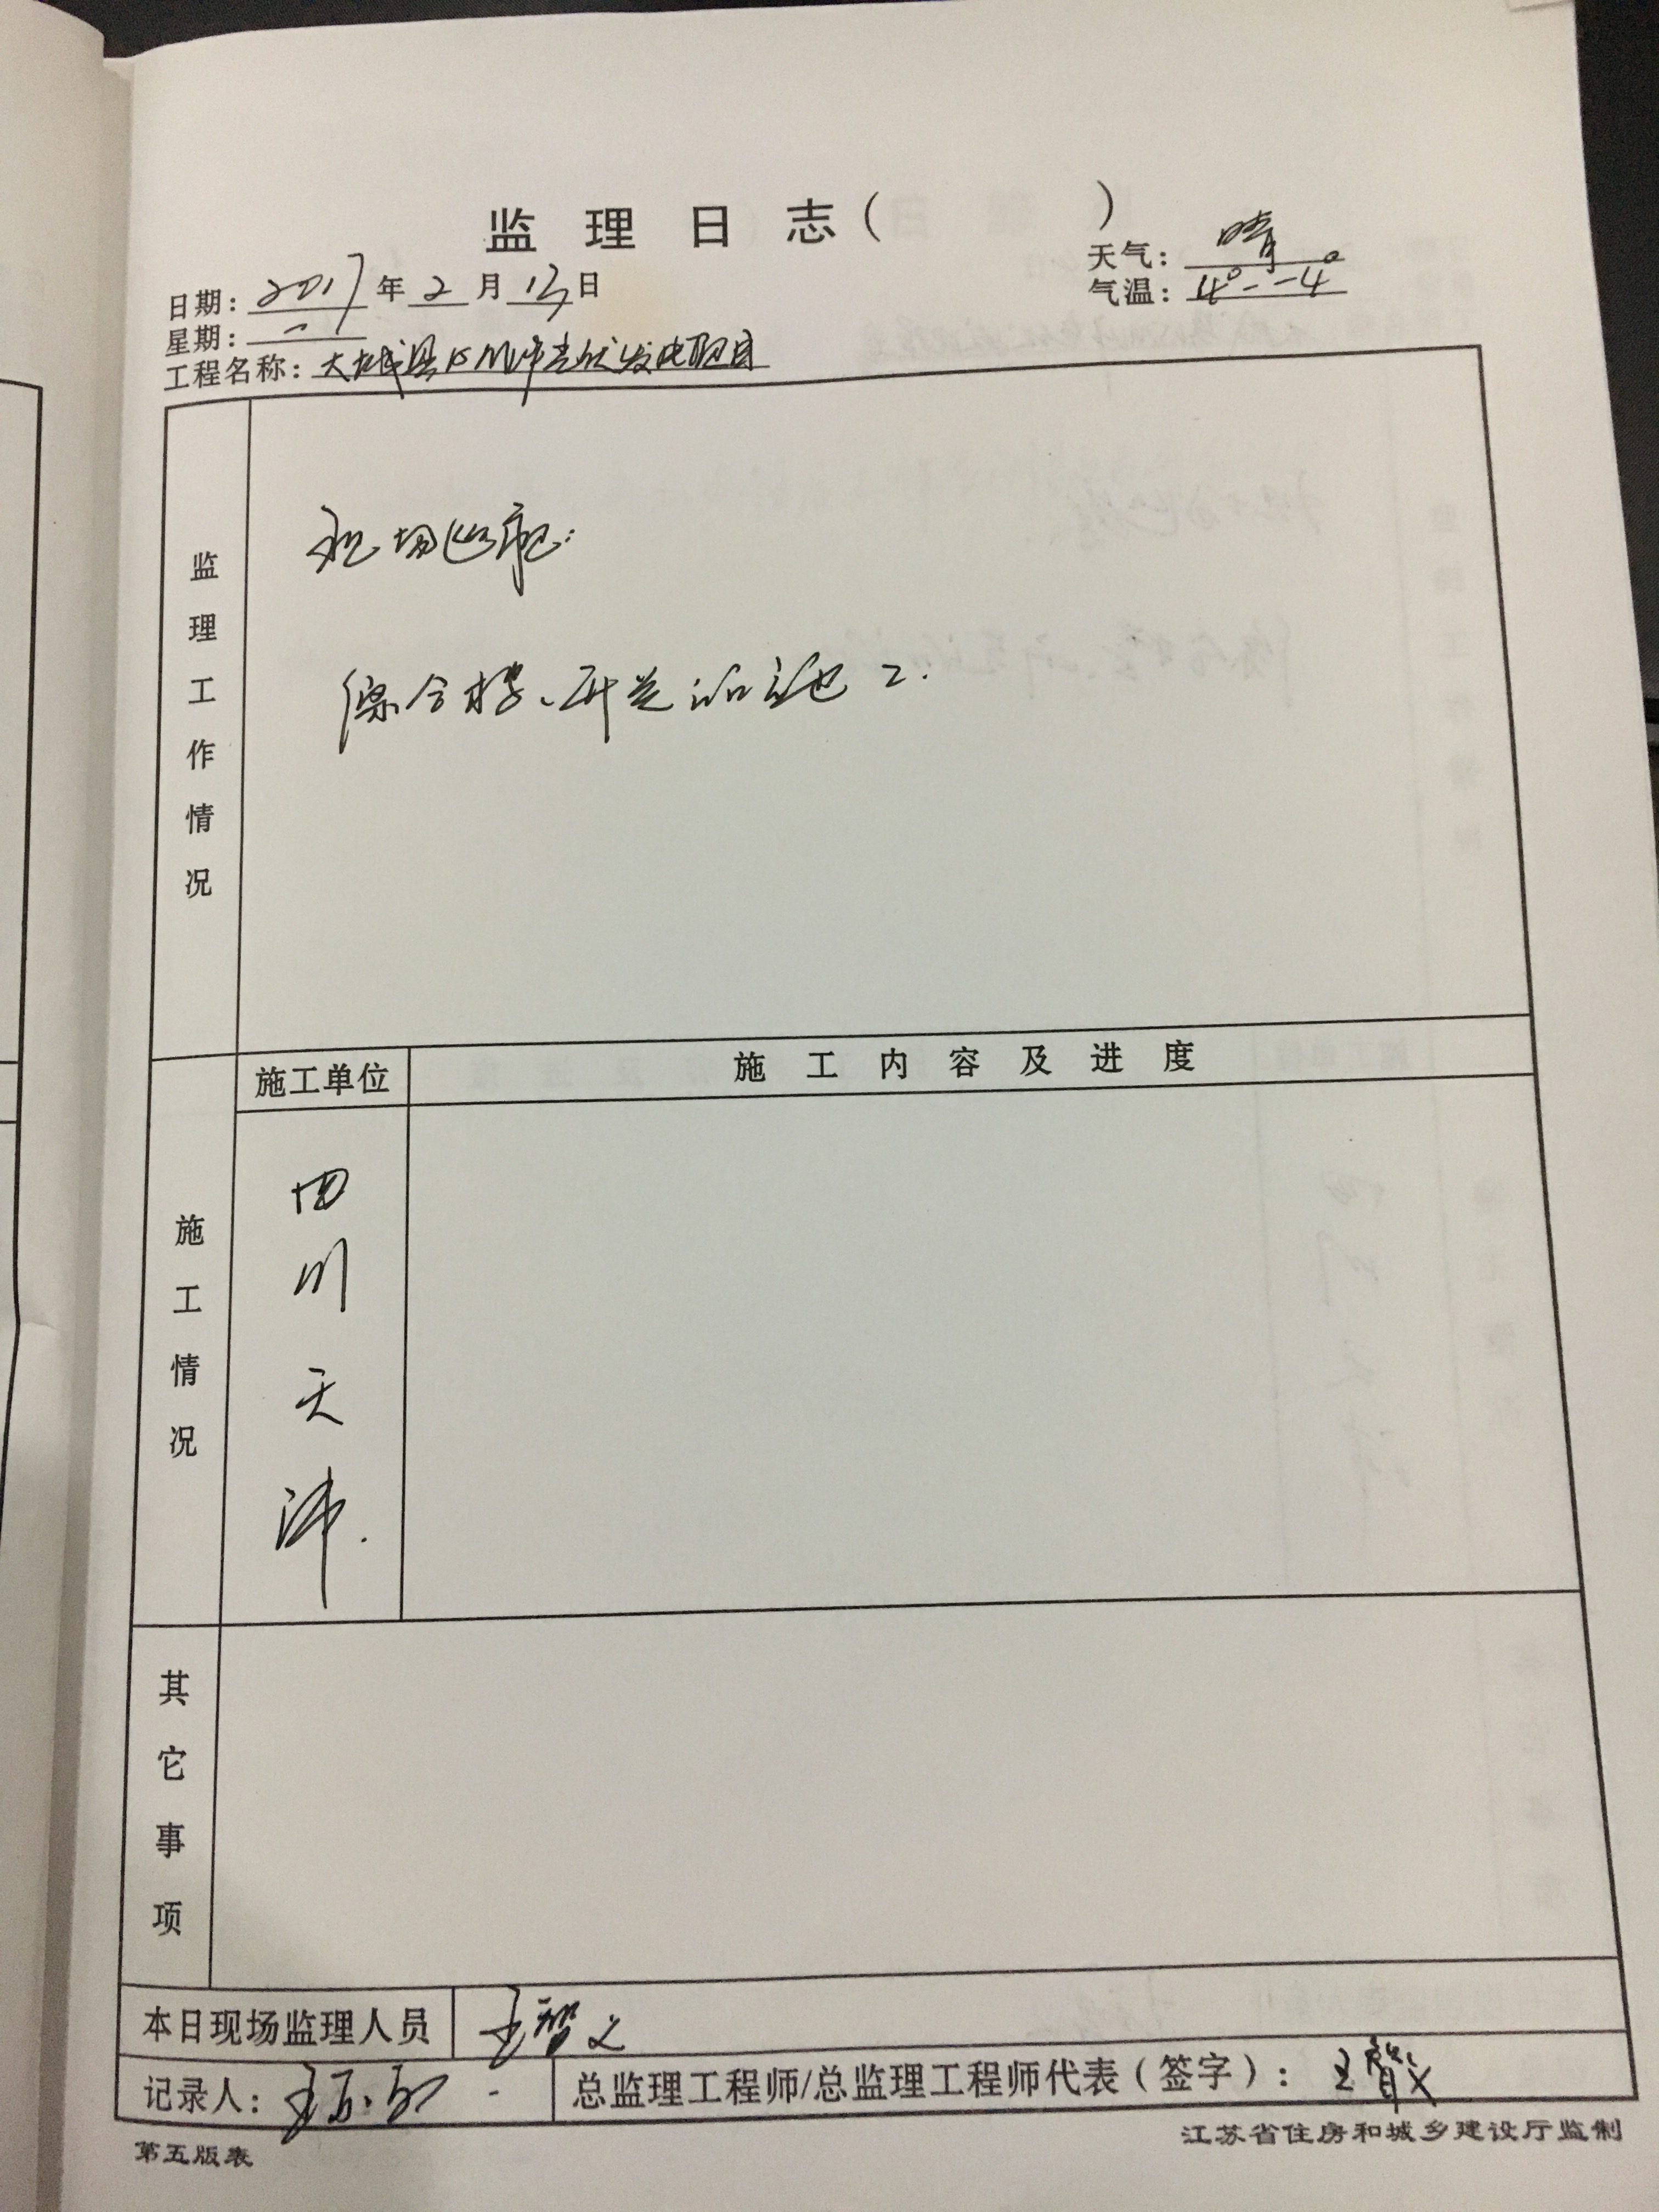 监理日志( )
日期: 2017 年 2 月 13 日
天气: 晴
星期: 一
气温: 4°--4°
工程名称: 大城县15MW光伏发电项目
监理工作情况
现场巡视:
综合楼、开关站未施工.
施工单位
施工内容及进度
施工情况
四川天沛.
其它事项
本日现场监理人员
王智义
记录人:
总监理工程师/总监理工程师代表(签字):
第五版表
江苏省住房和城乡建设厅监制